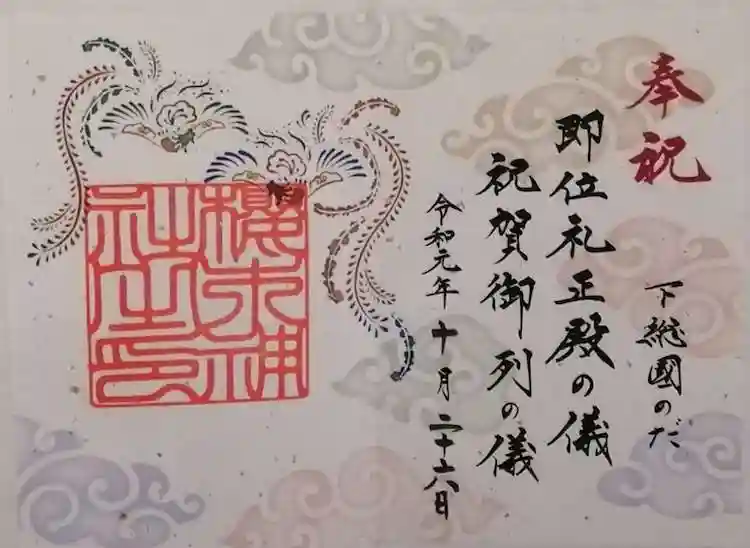 奉祝
下総國のだ
即位礼正殿の儀
祝賀御列の儀
令和元年十月二十六日
櫻木神
社之印